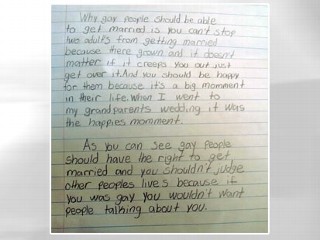 Why gay people should be able
to get married is you can't stop
two adults from getting married
because there grown and it doesn't
matter if it creeps you out just
get over it. And you should be happy
for them because it's a big momment
in their life. When I went to
my grandparents wedding it was
the happies momment.
As you can see gay people
should have the right to get
married and you shouldn't judge
other peoples lives because if
you was gay you wouldn't want
people talking about you.